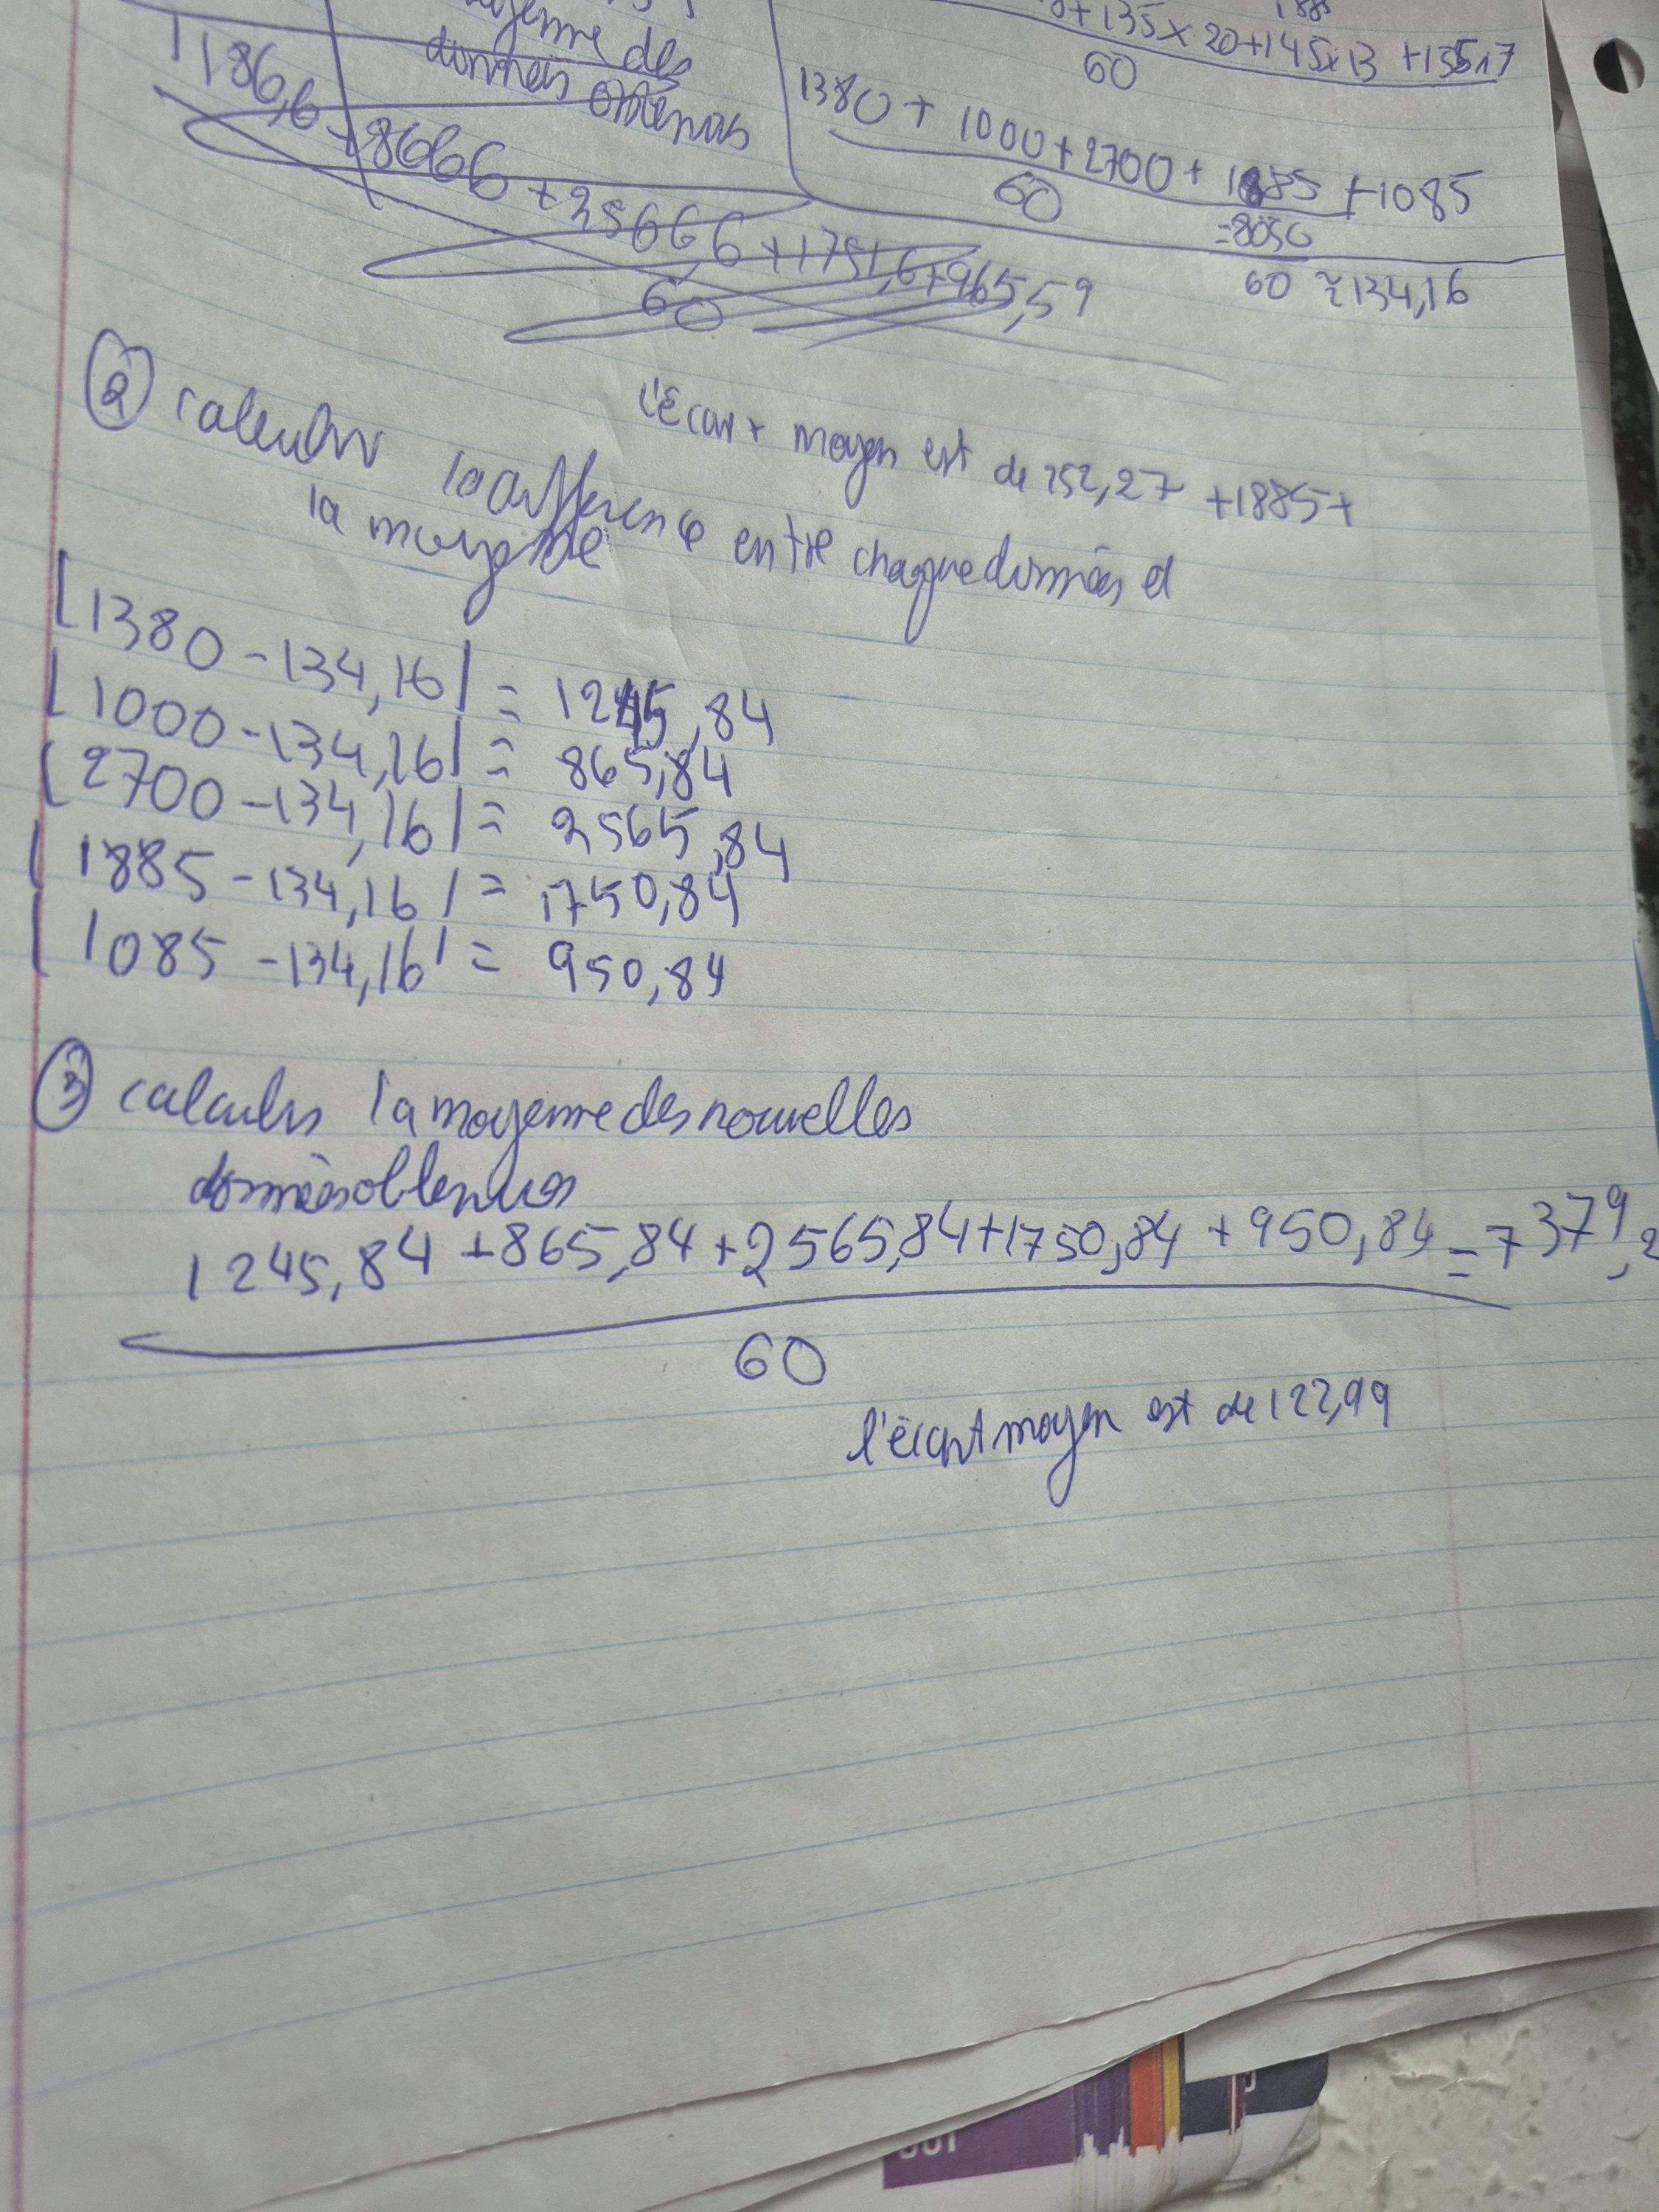 données obtenus
1186,6 + 8666 + 25666,6 + 1751,6 + 965,59
60
+135x20+145x13 +155x7
60
1380 + 1000 + 2700 + 1885 + 1085
60
=8050
60 ≈134,16
l'Écart moyen est de 252,27 +1885+
② calculer la différence entre chaque données et
la moyenne
|1380 - 134,16| = 1245,84
|1000 - 134,16| = 865,84
|2700 - 134,16| = 2565,84
|1885 - 134,16| = 1750,84
|1085 - 134,16| = 950,84
③ calculer la moyenne des nouvelles
données obtenues
1245,84 + 865,84 + 2565,84 + 1750,84 + 950,84 = 7379,2
60
l'écart moyen est de 122,99